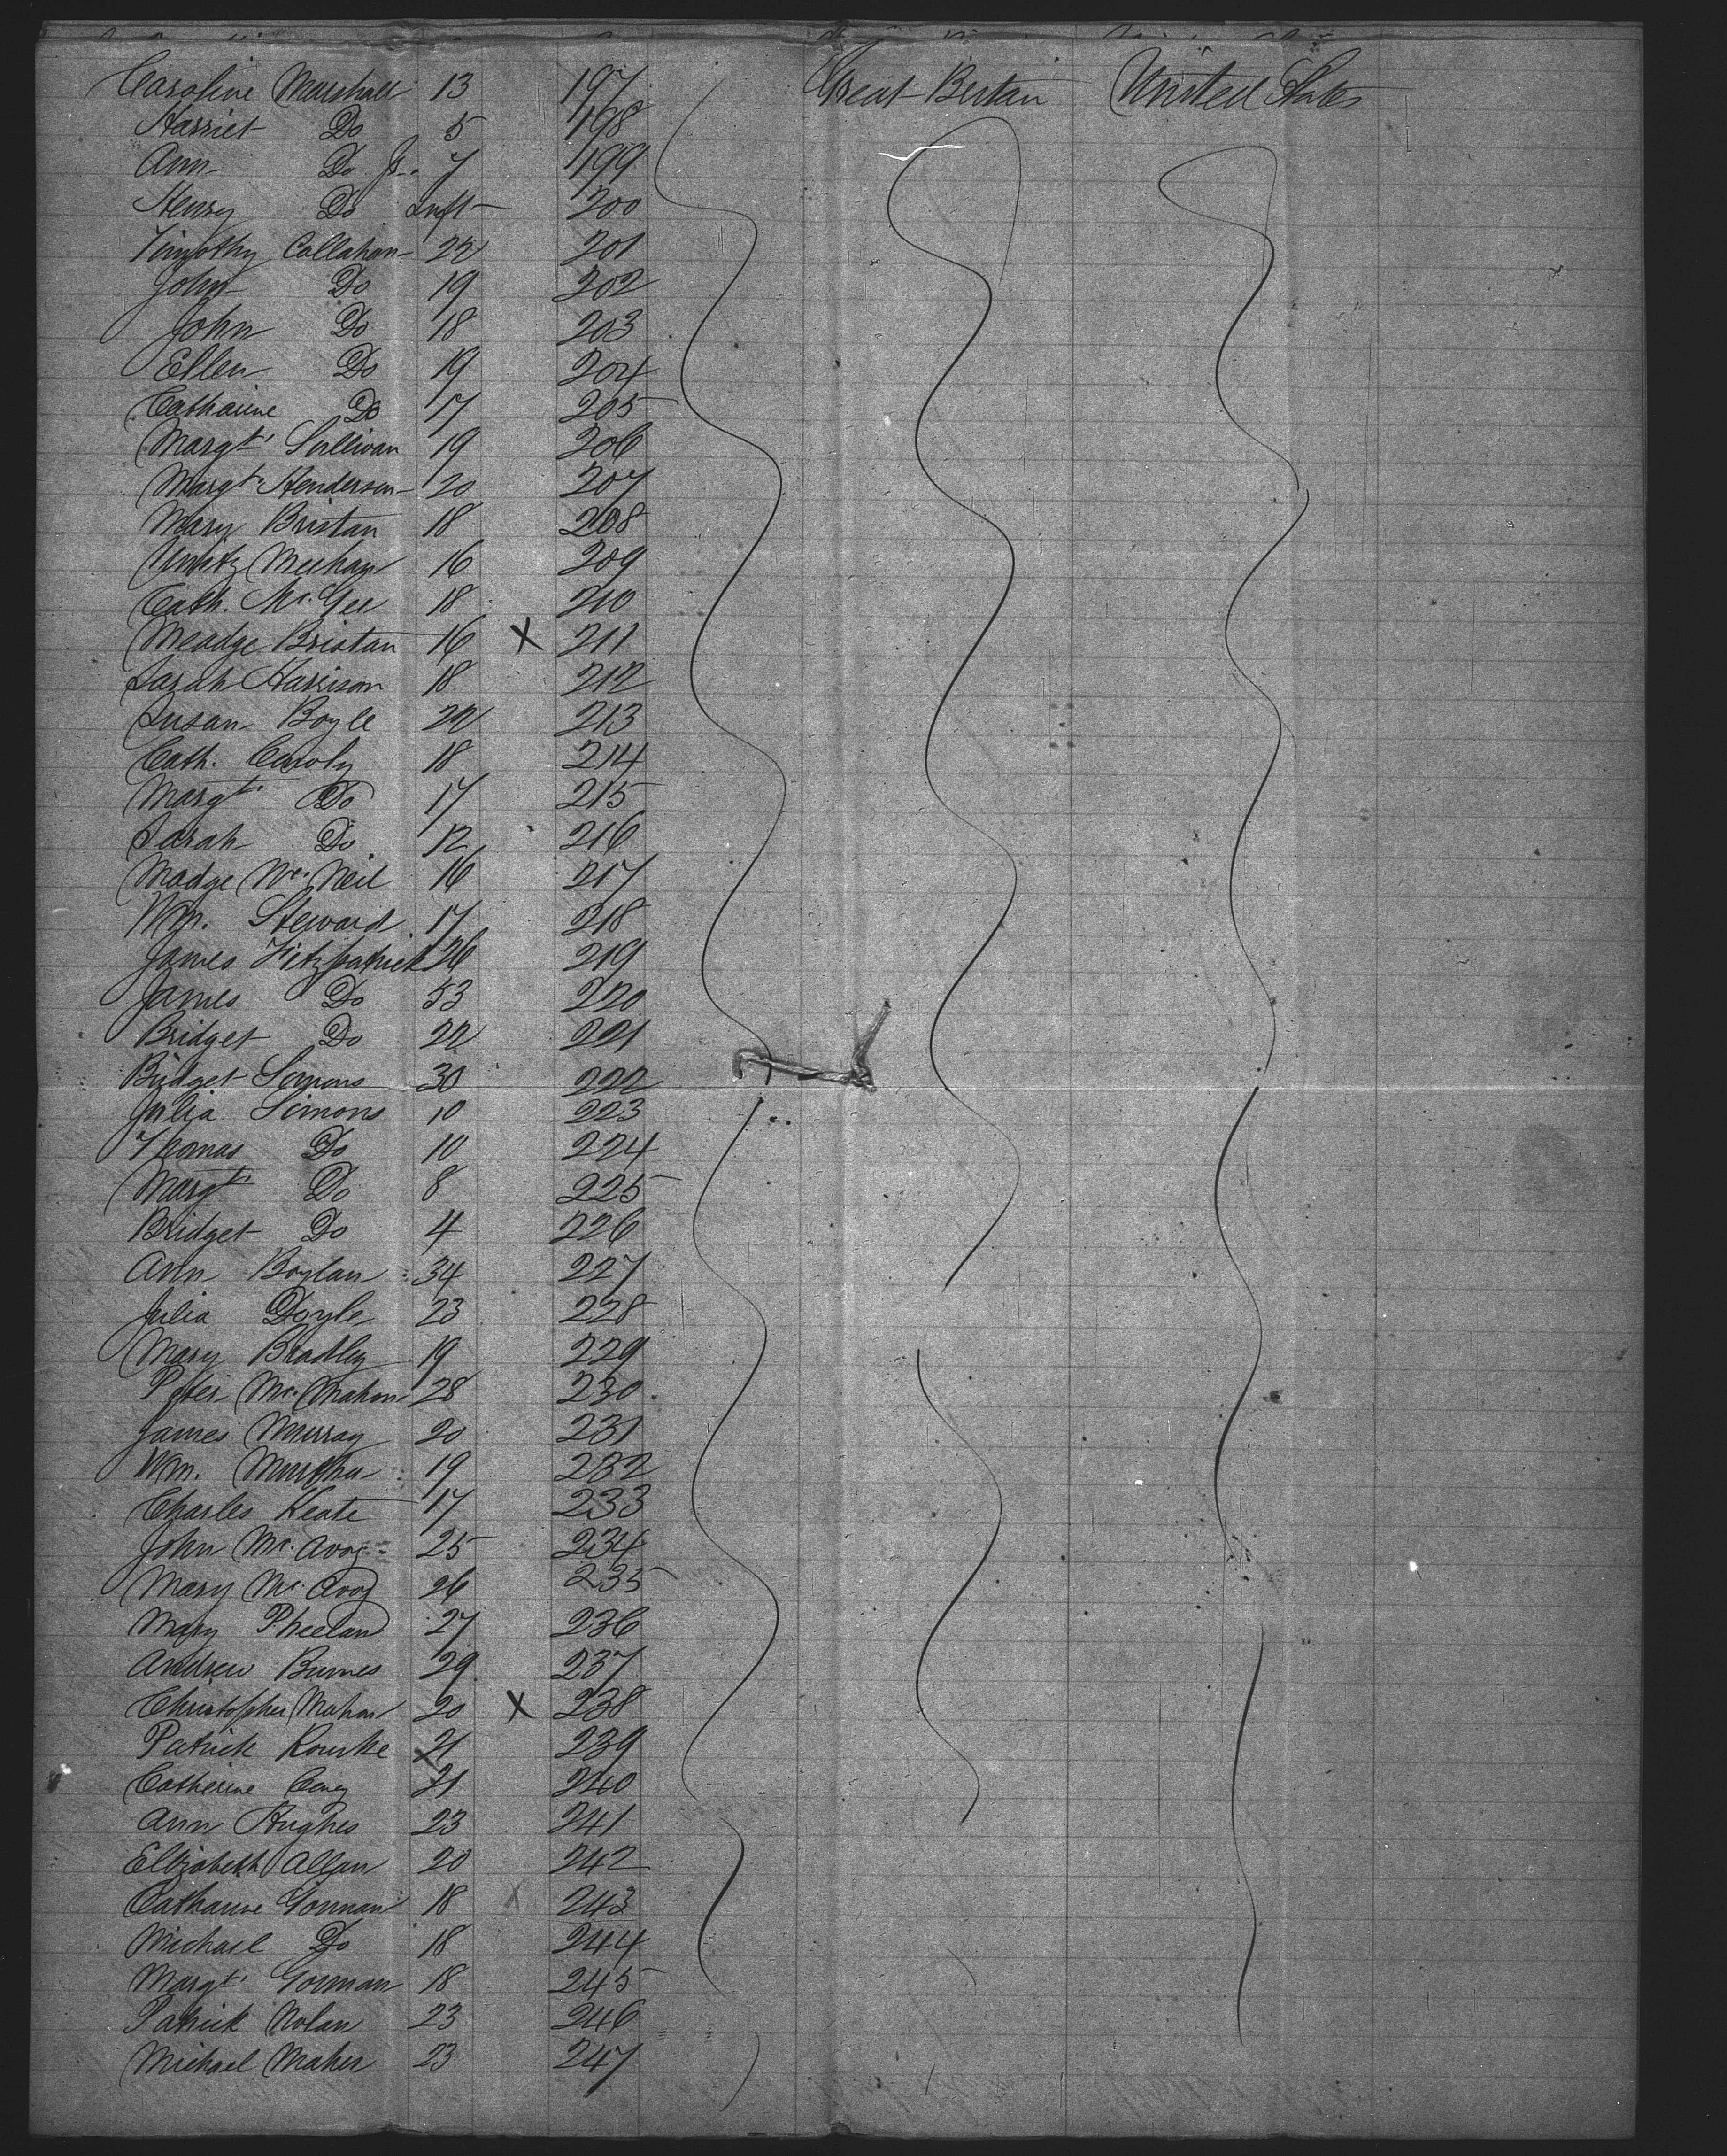 Caroline Marshall 13 197 Great Bertain United States
Harriet Do 5 198
Ann Do Jr. 7 199
Henry Do Inft 200
Timothy Callahan 22 201
John Do 19 202
John Do 18 203
Ellen Do 19 204
Catharine Do 17 205
Margt. Sullivan 19 206
Margt. Henderson 20 207
Mary Bristan 18 208
Meehan 16 209
Cath. Mc. Gee 18 210
Meadge Bristan 16 X 211
Sarah Harrison 18 212
Susan Boyle 22 213
Cath. 18 214
Margt. Do 17 215
Sarah Do 12 216
Madge Mc. Neil 16 217
Wm. Steward 17 218
James Fitzpatrick 26 219
James Do 53 220
Bridget Do 22 221
Bridget Simons 30 222
Julia Simons 10 223
Thomas Do 10 224
Margt. Do 8 225
Bridget Do 4 226
Ann Boylan 34 227
Julia Doyle 23 228
Mary Bradley 19 229
Peter Mc. Mahon 28 230
James Murray 20 231
Wm. Murtha 19 232
Charles Keate 17 233
John Mc. Avoy 25 234
Mary Mc. Avoy 26 235
Mary Pheeland 27 236
Andrew Burnes 29 237
Christopher Mahon 20 X 238
Patrick Rourke 21 239
Catherine 21 240
Ann Hughes 23 241
Elizabeth Allan 20 242
Catharine Gorman 18 X 243
Michael Do 18 244
Margt. Gorman 18 245
Patrick Nolan 23 246
Michael Maher 23 247